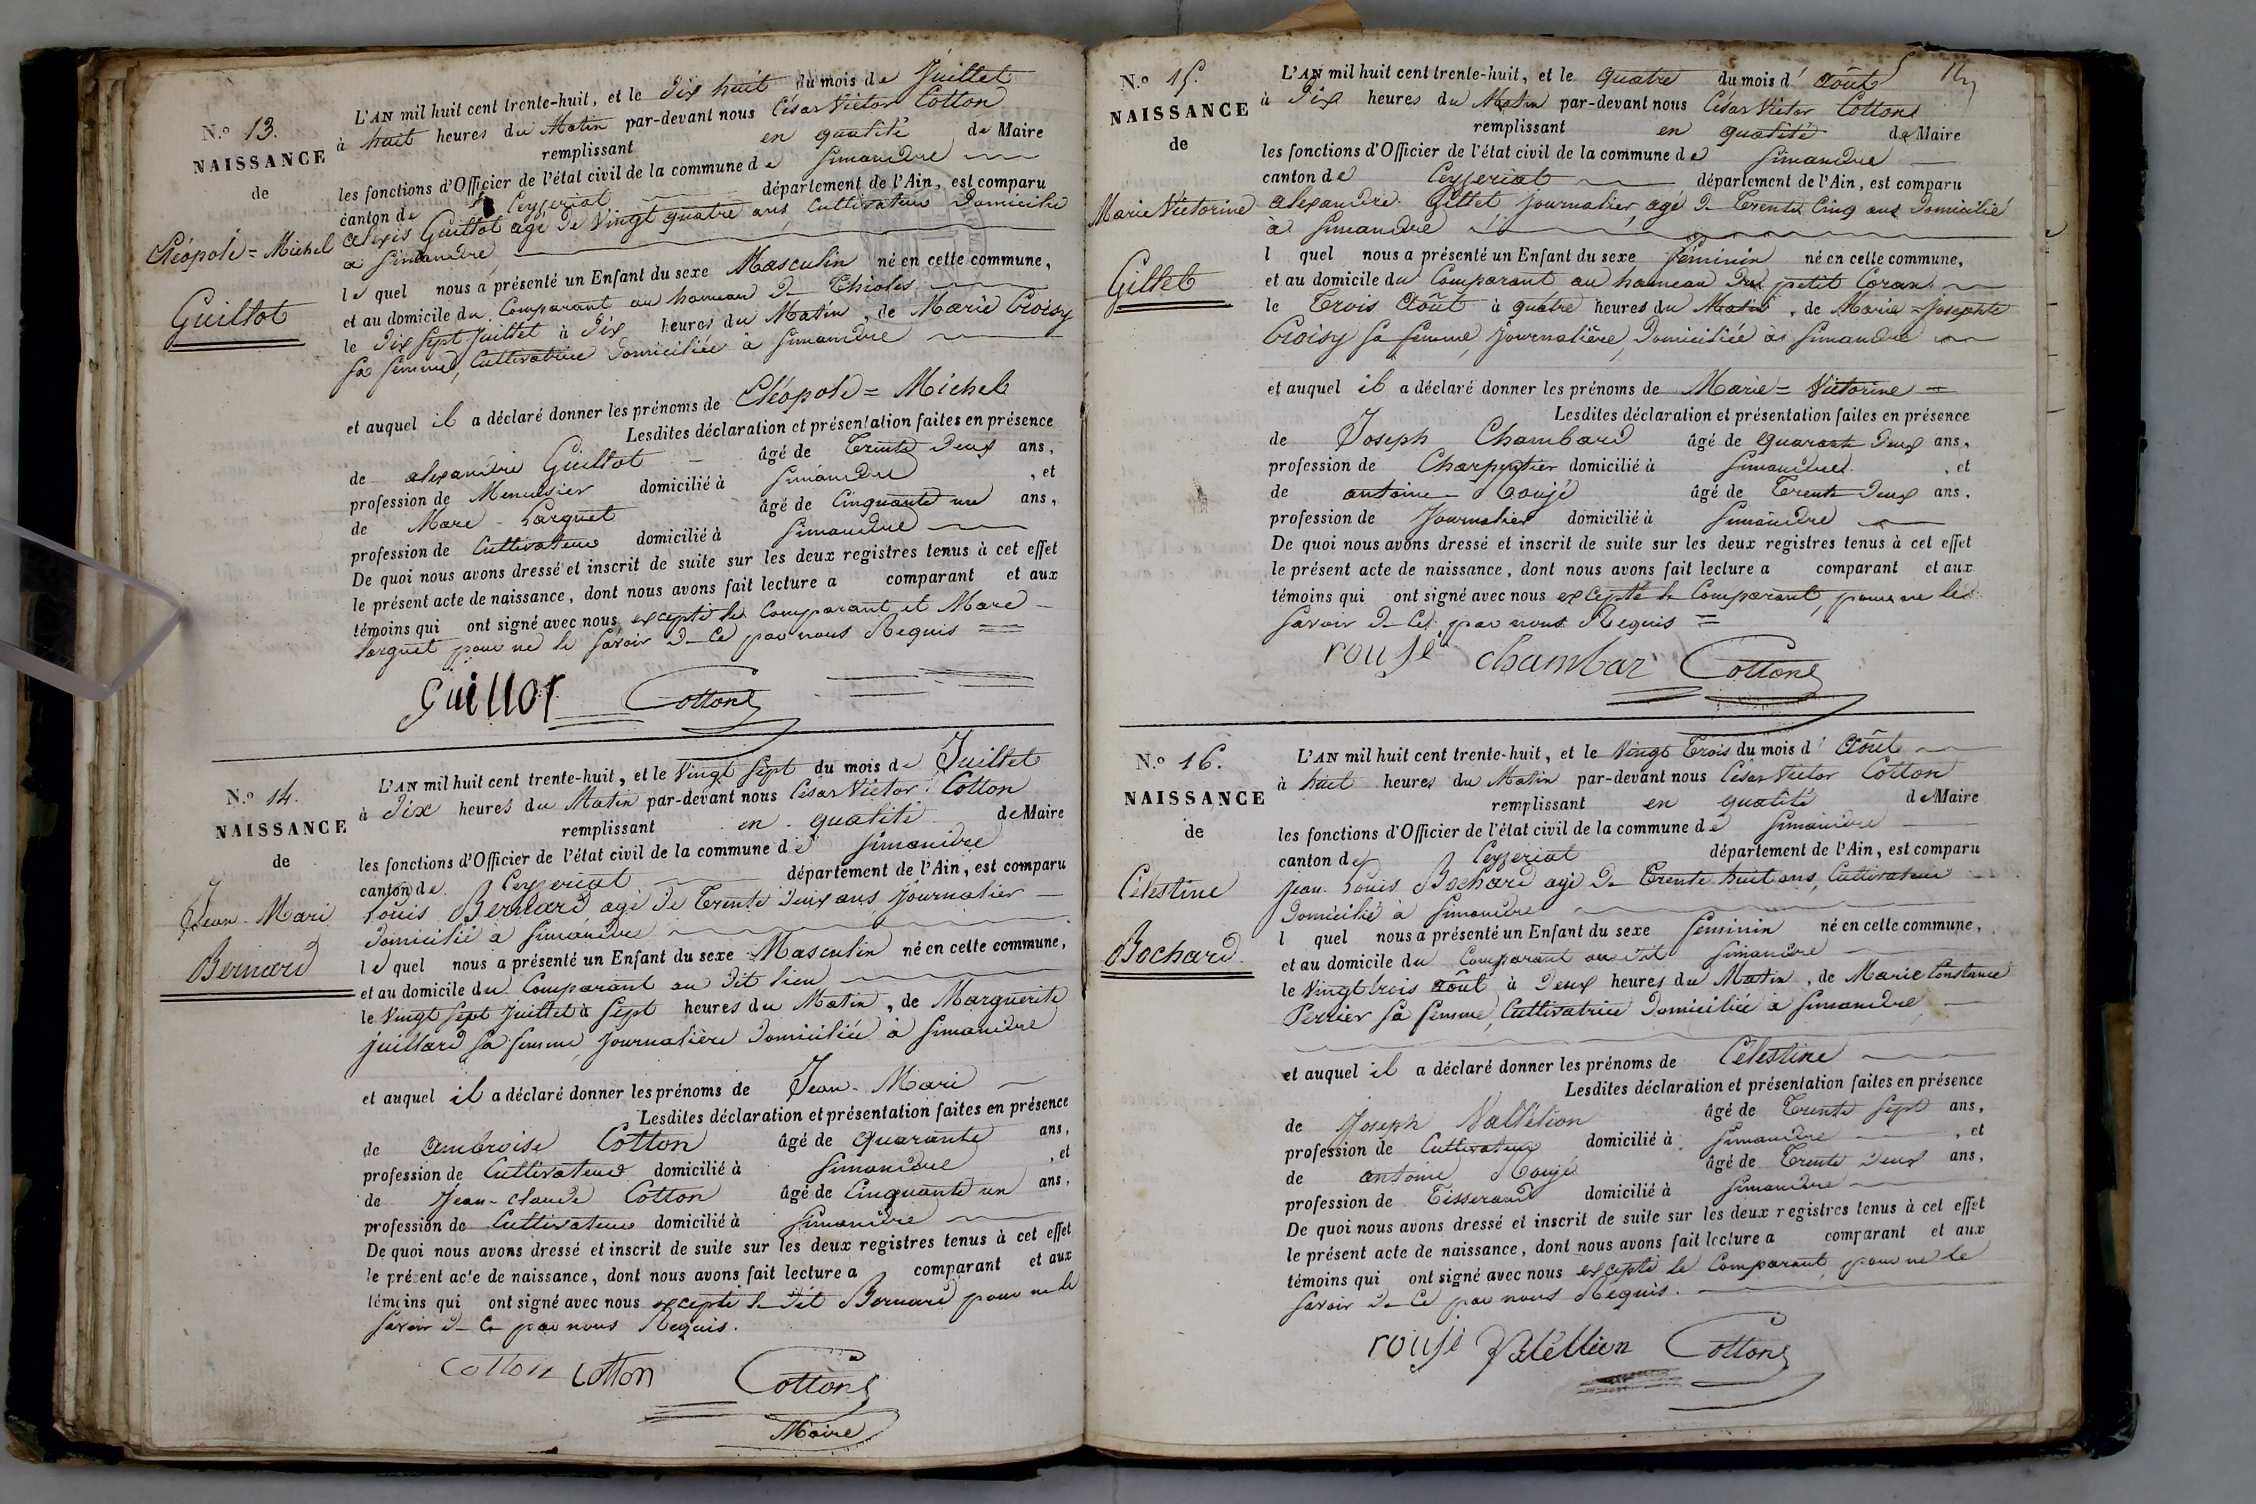 N.º 13.
NAISSANCE
de
Cléopold = Michel
Guillot
L'AN mil huit cent trente-huit, et le Dix huit du mois de Juillet
à huit heures du Matin par-devant nous César Victor Cotton
remplissant en qualité de Maire
les fonctions d'Officier de l'état civil de la commune de Simandre
canton de Ceyzeriat département de l'Ain, est comparu
alexis Guillot agé de Vingt quatre ans, Cultivateur Domicilié
à Simandre
le quel nous a présenté un Enfant du sexe Masculin né en cette commune,
et au domicile du Comparant au hameau de Thioles
le Dix Sept Juillet à Dix heures du Matin, de Marie Croisy
Sa femme, Cultivatrice Domiciliée à Simandre
et auquel il a déclaré donner les prénoms de Cléopold = Michel
Lesdites déclaration et présentation faites en présence
de alexandre Guillot âgé de Trente Deux ans,
profession de Menuisier domicilié à Simandre, et
de Marc Larguet âgé de Cinquante un ans,
profession de Cultivateur domicilié à Simandre
De quoi nous avons dressé et inscrit de suite sur les deux registres tenus à cet effet
le présent acte de naissance, dont nous avons fait lecture a comparant et aux
témoins qui ont signé avec nous excepté le Comparant et Marc
Larguet pour ne le savoir de ce par nous Requis =
Guillot Cotton
N.º 14.
NAISSANCE
de
Jean-Mari
Bernard
L'AN mil huit cent trente-huit, et le Vingt Sept du mois de Juillet
à Dix heures du Matin par-devant nous César Victor Cotton
remplissant en qualité de Maire
les fonctions d'Officier de l'état civil de la commune de Simandre
canton de Ceyzeriat département de l'Ain, est comparu
Louis Bernard agé de Trente Deux ans Journalier
Domicilié à Simandre
le quel nous a présenté un Enfant du sexe Masculin né en cette commune,
et au domicile du Comparant au Dit lieu
le Vingt Sept Juillet à Sept heures du Matin, de Marguerite
Juillard Sa femme, Journalière Domiciliée à Simandre
et auquel il a déclaré donner les prénoms de Jean-Mari
Lesdites déclaration et présentation faites en présence
de Ambroise Cotton âgé de Quarante ans,
profession de Cultivateur domicilié à Simandre, et
de Jean-Claude Cotton âgé de Cinquante un ans,
profession de Cultivateur domicilié à Simandre
De quoi nous avons dressé et inscrit de suite sur les deux registres tenus à cet effet
le présent acte de naissance, dont nous avons fait lecture a comparant et aux
témoins qui ont signé avec nous excepté le Dit Bernard pour ne le
savoir de ce par nous Requis.
Cotton Cotton Cotton
Maire
N.º 15.
NAISSANCE
de
Marie Victorine
Gillet
L'AN mil huit cent trente-huit, et le quatre du mois d' Août
à Dix heures du Matin par-devant nous César Victor Cotton
remplissant en qualité de Maire
les fonctions d'Officier de l'état civil de la commune de Simandre
canton de Ceyzeriat département de l'Ain, est comparu
alexandre Gillet journalier, agé de Trente Cinq ans Domicilié
à Simandre
l quel nous a présenté un Enfant du sexe féminin né en cette commune,
et au domicile du Comparant au hameau du petit Coran
le Trois Août à quatre heures du Matin, de Marie = Josephte
Croisy Sa femme, Journalière, Domiciliée à Simandre
et auquel il a déclaré donner les prénoms de Marie = Victorine =
Lesdites déclaration et présentation faites en présence
de Joseph Chambard âgé de Quarante Deux ans,
profession de Charpentier domicilié à Simandre, et
de antoine Roujé âgé de Trente Deux ans,
profession de Journalier domicilié à Simandre
De quoi nous avons dressé et inscrit de suite sur les deux registres tenus à cet effet
le présent acte de naissance, dont nous avons fait lecture a comparant et aux
témoins qui ont signé avec nous excepté le Comparant, pour ne le
Savoir de ce par nous Requis =
roujé chambar Cotton
N.º 16.
NAISSANCE
de
Célestine
Bochard
L'AN mil huit cent trente-huit, et le Vingt Trois du mois d' Août
à huit heures du Matin par-devant nous César Victor Cotton
remplissant en qualité de Maire
les fonctions d'Officier de l'état civil de la commune de Simandre
canton de Ceyzeriat département de l'Ain, est comparu
Jean Louis Bochard agé de Trente huit ans, Cultivateur
Domicilié à Simandre
l quel nous a présenté un Enfant du sexe féminin né en cette commune,
et au domicile du Comparant au dit Simandre
le Vingt trois août à Deux heures du Matin, de Marie Constance
Perrier Sa femme, Cultivatrice Domiciliée à Simandre
et auquel il a déclaré donner les prénoms de Célestine
Lesdites déclaration et présentation faites en présence
de Joseph Vallélion âgé de Trente Sept ans,
profession de Cultivateur domicilié à Simandre, et
de antoine Roujé âgé de Trente Deux ans,
profession de Tisserand domicilié à Simandre
De quoi nous avons dressé et inscrit de suite sur les deux registres tenus à cet effet
le présent acte de naissance, dont nous avons fait lecture a comparant et aux
témoins qui ont signé avec nous excepté le Comparant, pour ne le
savoir de ce par nous Requis.
roujé Valellion Cotton